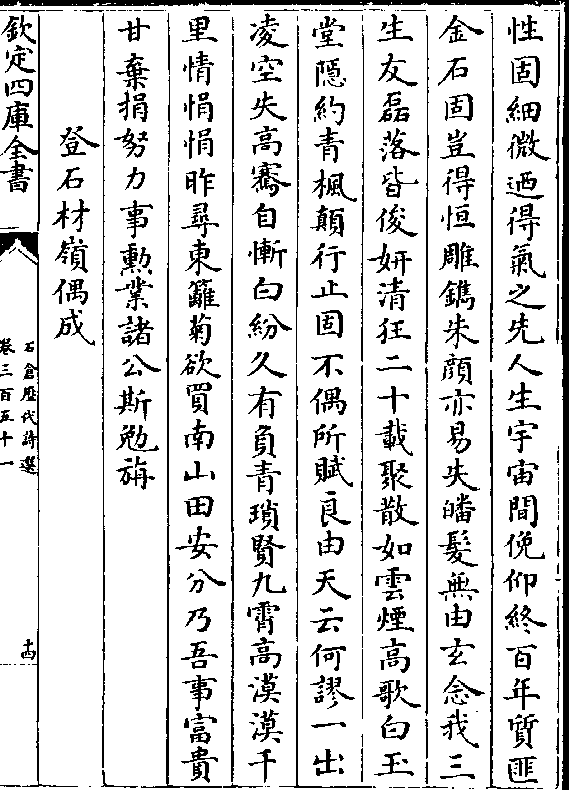 性固細微迺得氣之先人生宇宙間俛仰終百年質匪
金石固豈得恒雕鐫朱顔亦易失皤髮無由玄念我三
生友磊落皆俊妍清狂二十載聚散如雲煙高歌白玉
堂隱約青楓顛行止固不偶所賦良由天云何謬一出
凌空失高騫自慚白紛久有負青瑣賢九霄高漠漠千
里情悁悁昨尋東籬菊欲買南山田安分乃吾事富貴
甘棄捐努力事勳業諸公斯勉旃
登石材嶺偶成
欽定四庫全書
石倉歷代詩選
卷三百五十一
十四